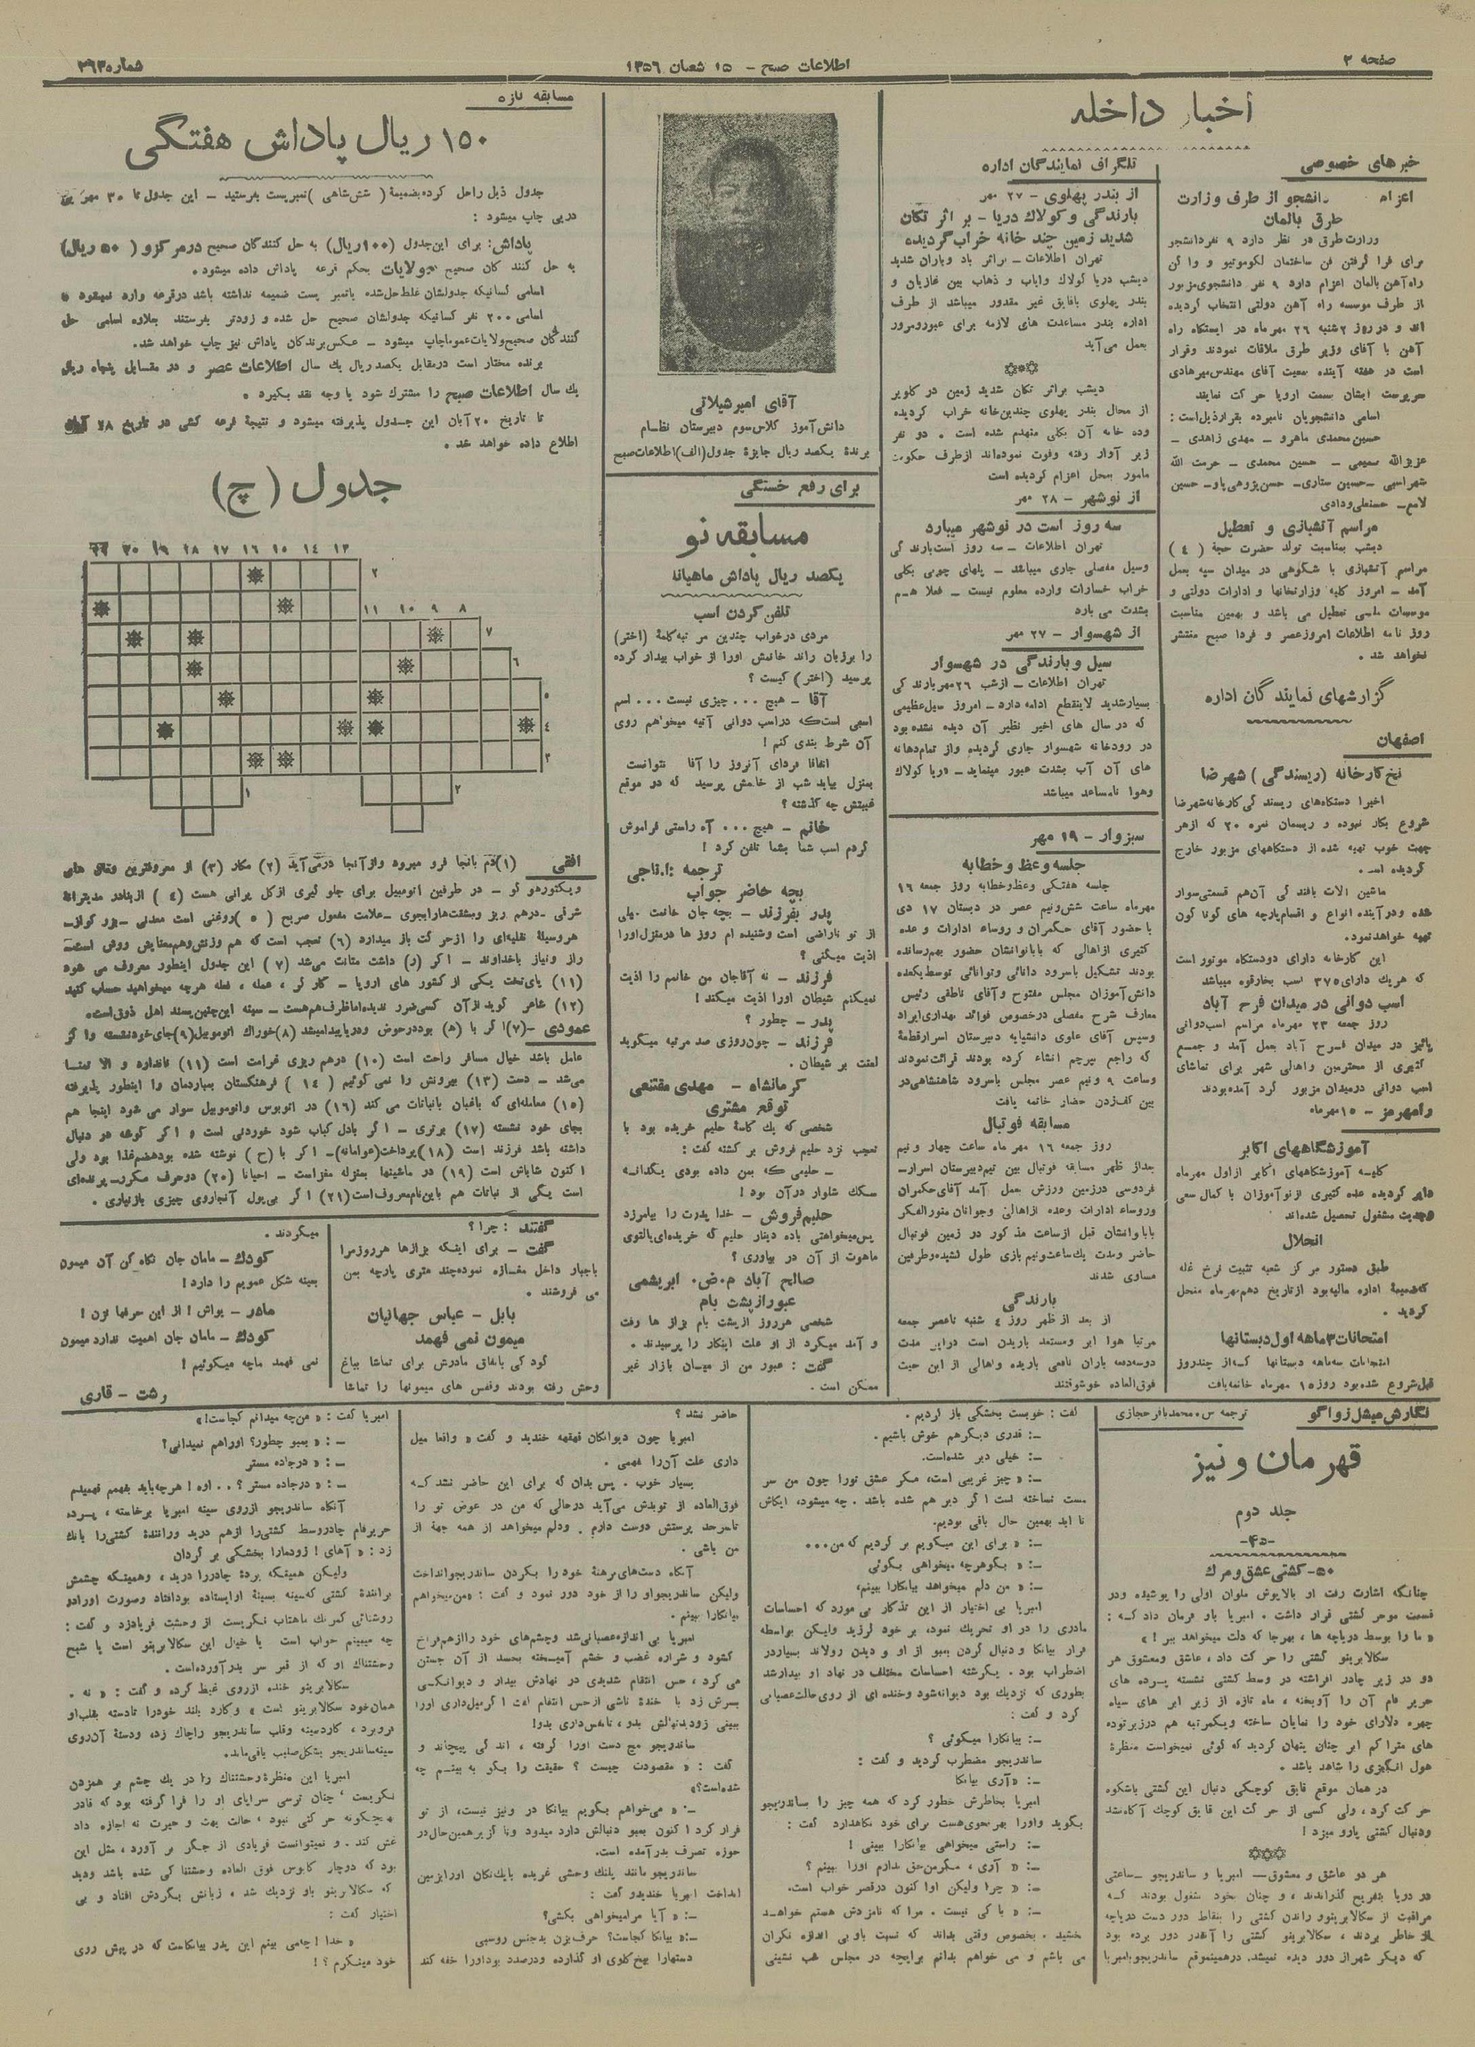 صفحه ۲
اطلاعات صبح – ۱۵ شعبان ۱۳۵۶
شماره ۳۶۳
اخبار داخله
خبرهای خصوصی
اعزام دانشجو از طرف وزارت
طرق بالمان
وزارت طرق در نظر دارد ۹ نفر دانشجو
برای فرا گرفتن فن ساختمان لکوموتیو و واگن
راه آهن بالمان اعزام دارد ۹ نفر دانشجوی مزبور
از طرف موسسه راه آهن دولتی انتخاب گردیده
اند و در روز ۲ شنبه ۲۶ مهرماه در ایستگاه راه
آهن با آقای وزیر طرق ملاقات نمودند و قرار
است در هفته آینده بمعیت آقای مهندس میرهادی
سرپرست ایشان بسمت اروپا حرکت نمایند
اسامی دانشجویان نامبرده بقرار ذیل است :
حسین محمدی ماهرو – مهدی زاهدی –
عزیزالله سمیعی – حسین محمدی – حرمت الله
شهراسبی – حسین ستاری – حسن پژوهی یاو – حسین
لامع – حسنعلی ودادی
مراسم آتشبازی و تعطیل
دیشب بمناسبت تولد حضرت حجة ( ع )
مراسم آتشبازی با شکوهی در میدان سپه بعمل
آمد – امروز کلیه وزارتخانها و ادارات دولتی و
موسسات ملی تعطیل می باشد و بهمین مناسبت
روز نامه اطلاعات امروز عصر و فردا صبح منتشر
نخواهد شد .
گزارشهای نمایندگان اداره
اصفهان
نخ کارخانه (ریسندگی) شهرضا
اخیرا دستگاه‌های ریسندگی کارخانه شهرضا
شروع بکار نموده و ریسمان نمره ۲۰ که از هر
جهت خوب تهیه شده از دستگاههای مزبور خارج
گردیده است .
ماشین آلات بافندگی آن‌هم قسمتی سوار
شده و در آینده انواع و اقسام پارچه های گوناگون
تهیه خواهد نمود .
این کارخانه دارای دو دستگاه موتور است
که هریك دارای ۳۷۵ اسب بخار قوه میباشد
اسب دوانی در میدان فرح آباد
روز جمعه ۲۳ مهرماه مراسم اسب‌دوانی
پائیز در میدان فرح آباد بعمل آمد و جمع
کثیری از محترمین و اهالی شهر برای تماشای
اسب دوانی در میدان مزبور گرد آمده بودند
رامهرمز – ۱۵ مهرماه
آموزشگاههای اکابر
کلیه آموزشگاههای اکابر از اول مهرماه
دایر گردیده عده کثیری از نوآموزان با کمال سعی
و جدیت مشغول تحصیل شده‌اند
انحلال
طبق دستور مرکز شعبه تثبیت نرخ غله
که ضمیمهٔ اداره مالیه بود از تاریخ دهم مهرماه منحل
گردید .
امتحانات ۳ ماهه اول دبستانها
امتحانات سه ماهه دبستانها که از چند روز
قبل شروع شده بود روز ۱۵ مهرماه خاتمه یافت
تلگراف نمایندگان اداره
از بندر پهلوی – ۲۷ مهر
بارندگی و کولاك دریا – بر اثر تکان
شدید زمین چند خانه خراب گردیده
تهران اطلاعات – براثر باد و باران شدید
دیشب دریا کولاك و ایاب و ذهاب بین غازیان و
بندر پهلوی باقایق غیر مقدور میباشد از طرف
اداره بندر مساعدت های لازمه برای عبور و مرور
بعمل می‌آید
دیشب براثر تکان شدید زمین در کلویر
از محال بندر پهلوی چندین خانه خراب گردیده
وده خانه آن بکلی منهدم شده است . دو نفر
زیر آوار رفته و فوت نموده‌اند از طرف حکومت
مامور بمحل اعزام گردیده است
از نوشهر – ۲۸ مهر
سه روز است در نوشهر میبارد
تهران اطلاعات – سه روز است بارندگی
وسیل مفصلی جاری میباشد – پلهای چوبی بکلی
خراب خسارات وارده معلوم نیست – فعلا هم
بشدت می بارد
از شهسوار – ۲۷ مهر
سیل و بارندگی در شهسوار
تهران اطلاعات – از شب ۲۶ مهر بارندگی
بسیار شدید لاینقطع ادامه دارد – امروز سیل عظیمی
که در سال های اخیر نظیر آن دیده نشده بود
در رودخانه شهسوار جاری گردیده و از تمام دهانه
های آن آب بشدت عبور مینماید – دریا کولاك
وهوا نامساعد میباشد
سبزوار – ۱۹ مهر
جلسه وعظ و خطابه
جلسه هفتگی وعظ و خطابه روز جمعه ۱۶
مهرماه ساعت شش و نیم عصر در دبستان ۱۷ دی
با حضور آقای حکمران و روساء ادارات و عده
کثیری از اهالی که بابانوانشان حضور بهم رسانده
بودند تشکیل باسرود دانائی و توانائی توسط یکعده
دانش‌آموزان مجلس مفتوح و آقای ناطقی رئیس
معارف شرح مفصلی در خصوص فوائد بهداری ایراد
وسپس آقای علوی دانشپایه دبیرستان اسرار قطعهٔ
که راجع بپرچم انشاء کرده بودند قرائت نمودند
وساعت ۹ ونیم عصر مجلس باسرود شاهنشاهی در
بین کف زدن حضار خاتمه یافت
مسابقه فوتبال
روز جمعه ۱۶ مهر ماه ساعت چهار و نیم
بعداز ظهر مسابقه فوتبال بین تیم دبیرستان اسرار –
فردوسی در زمین ورزش بعمل آمد آقای حکمران
وروساء ادارات وعده از اهالی و جوانان منورالفکر
بابانوانشان قبل از ساعت مذکور در زمین فوتبال
حاضر ومدت یك ساعت ونیم بازی طول کشیده و طرفین
مساوی شدند
بارندگی
از بعد از ظهر روز ۴ شنبه تا عصر جمعه
مرتبا هوا ابر و مستعد باریدن است در این مدت
دوسه دفعه باران نافعی باریده و اهالی از این حیث
فوق‌العاده خوشوقتند
آقای امیر شیلاتی
دانش آموز کلاس سوم دبیرستان نظام
برندهٔ یکصد ریال جایزهٔ جدول (الف) اطلاعات صبح
برای رفع خستگی
مسابقه نو
یکصد ریال پاداش ماهیانه
تلفن کردن اسب
مردی درخواب چندین مرتبه کلمهٔ (اختر)
را برزبان راند خانمش اورا از خواب بیدار کرده
پرسید (اختر) کیست ؟
آقا – هیچ ... چیزی نیست ... اسم
اسبی است که دراسب دوانی آتیه میخواهم روی
آن شرط بندی کنم !
اتفاقا فردای آنروز را آقا نتوانست
بمنزل بیاید شب از خانمش پرسید که در موقع
غیبتش چه گذشته ؟
خانم – هیچ ... آه راستی فراموش
کردم اسب شما بشما تلفن کرد !
ترجمه : ا.تاجی
بچه حاضر جواب
پدر بفرزند – بچه جان خانمت خیلی
از تو ناراضی است و شنیده ام روز ها در منزل اورا
اذیت میکنی ؟
فرزند – نه آقاجان من خانمم را اذیت
نمیکنم شیطان اورا اذیت میکند !
پدر – چطور ؟
فرزند – چون روزی صد مرتبه میگوید
لعنت بر شیطان .
کرمانشاه – مهدی مقتنعی
توقع مشتری
شخصی که یك کاسهٔ حلیم خریده بود با
تعجب نزد حلیم فروش بر گشته گفت :
– حلیمی که بمن داده بودی یکدانه
سگك شلوار در آن بود !
حلیم فروش – خدا پدرت را بیامرزد
پس میخواهتی باده دینار حلیم که خریده‌ای پالتوی
ماهوت از آن در بیاوری ؟
صالح آباد م . ض . ابریشمی
عبور از پشت بام
شخصی هرروز از پشت بام بزاز ها رفت
و آمد میکرد از او علت اینکار را پرسیدند .
گفت : عبور من از میان بازار غیر
ممکن است .
گفتند : چرا ؟
گفت – برای اینکه بزازها هرروز مرا
باجبار داخل مغازه نموده چند متری پارچه بمن
می فروشند .
بابل – عباس جهانیان
میمون نمی فهمد
کودکی باتفاق مادرش برای تماشا بباغ
وحش رفته بودند و قفس های میمونها را تماشا
میکردند .
کودك – مامان جان نگاه کن آن میمون
بعینه شکل عمویم را دارد !
مادر – یواش ! از این حرفها نزن !
کودك – مامان جان اهمیت ندارد میمون
نمی فهمد ما چه میگوئیم !
رشت – قاری
مسابقه تازه
۱۵۰ ریال پاداش هفتگی
جدول ذیل را حل کرده بضمیمهٔ ( شش شاهی ) تمبر پست بفرستید – این جدول تا ۳۰ مهر پی
در پی چاپ میشود :
پاداش : برای این جدول (۱۰۰ ریال) به حل کنندگان صحیح در مرکز و ( ۵۰ ریال)
به حل کنندگان صحیح ولایات بحکم قرعه پاداش داده میشود .
اسامی کسانیکه جدولشان غلط حل شده یا تمبر پست ضمیمه نداشته باشد در قرعه وارد نمیشود .
اسامی ۲۰۰ نفر کسانیکه جدولشان صحیح حل شده و زودتر بفرستند بعلاوه اسامی حل
کنندگان صحیح ولایات عموما چاپ میشود – عکس برندگان پاداش نیز چاپ خواهد شد .
برنده مختار است در مقابل یکصد ریال یك سال اطلاعات عصر و در مقابل پنجاه ریال
یك سال اطلاعات صبح را مشترك شود یا وجه نقد بگیرد .
تا تاریخ ۲۰ آبان این جدول پذیرفته میشود و نتیجهٔ قرعه کشی در تاریخ ۲۸ آبان
اطلاع داده خواهد شد .
جدول ( چ )
۱۳ ۱۴ ۱۵ ۱۶ ۱۷ ۱۸ ۱۹ ۲۰ ۲۱
۲
۸ ۹ ۱۰ ۱۱
۷
۶
۵
۴
۳
۲ ۱
افقی (۱) دم بانجا فرو میرود و از آنجا در می‌آید (۲) مکار (۳) از معروفترین وقایع های
ویکتور هوگو – در طرفین اتومبیل برای جلوگیری از گل پرانی هست (۴) از بنادر مدیترانهٔ
شرقی – درهم ریز و بسفت‌هارابجوی – علامت مفعول صریح (۵) روغنی است معدنی – بزرگراز –
هر وسیلهٔ نقلیه‌ای را از حرکت باز میدارد (۶) تعجب است که هم وزنش و هم معنایش روش است –
راز و نیاز باخداوند – اگر (ر) داشت متانت می‌شد (۷) این جدول اینطور معروف می شود
(۱۱) پای‌تخت یکی از کشور های اروپا – کارگر ، عمله ، فعله هرچه میخواهید حساب کنید
(۱۲) شاعر گوید از آن کسی ضرر ندیده اما ظرف هم هست – سینه این چنین پسند اهل ذوق است .
عمودی – (۷) اگر با (ه) بود در حوض و دریا پیدا میشد (۸) خوراك اتوموبیل (۹) جای خود نشسته و اگر
عامل باشد خیال مسافر راحت است (۱۰) درهم ریزی قرامت است (۱۱) فاندارد و الا تمنا
می‌شد – دست (۱۳) بیرونش را نمی گوئیم (۱۴) فرهنگستان بمباردمان را اینطور پذیرفته
(۱۵) معامله‌ای که باغبان بانباتات می کند (۱۶) در اتوبوس و اتوموبیل سوار می شود اینجا هم
بجای خود نشسته (۱۷) برتری – اگر بادل کباب شود خوردنی است و اگر گوشه در دنبال
داشته باشد فرزند است (۱۸) پرداخت (عوامانه) – اگر با (ح) نوشته شده بود هضم غذا بود ولی
اکنون شاباش است (۱۹) در ماشینها بمنزله مغز است – احیانا (۲۰) دو حرف مکرر – پرنده‌ای
است یکی از نباتات هم باین نام معروف است (۲۱) اگر بی پول آنجاروی چیزی بازنیاری .
نگارش میشل زواگو
ترجمه س . محمد باقر حجازی
قهرمان ونیز
جلد دوم
۵۰– کشتی عشق و مرك
چنانکه اشارت رفت او بالاپوش ملوان اولی را پوشیده و در
قسمت موخر کشتی قرار داشت . امپریا باو فرمان داد که :
« ما را بوسط دریاچه ها ، بهرجا که دلت میخواهد ببر ! »
سکالابرینو کشتی را حرکت داد ، عاشق و معشوق هر
دو در زیر چادر افراشته در وسط کشتی نشسته پرده های
حریر فام آن را آویخته ، ماه تازه از زیر ابر های سیاه
چهره دلارای خود را نمایان ساخته و یکمرتبه هم در زیر توده
های متراکم ابر چنان پنهان گردید که گوئی نمیخواست منظرهٔ
هول انگیزی را شاهد باشد .
در همان موقع قایق کوچکی دنبال این کشتی باشکوه
حرکت کرد ، ولی کسی از حرکت این قایق کوچك آگاه نشد
ودنبال کشتی پارو میزد !
هر دو عاشق و معشوق – امپریا و ساندریجو – ساعتی
در دریا بتفریح گذراندند ، و چنان بخود مشغول بودند که
مراقبت از سکالابرینو و راندن کشتی را بنقاط دور دست دریاچه
از خاطر بردند ، سکالابرینو کشتی را آنقدر دور برده بود
که دیگر شهر از دور دیده نمیشد . در همین موقع ساندریجو بامپریا
گفت : خوبست بخشکی باز گردیم .
–: قدری دیگر هم خوش باشیم .
–: خیلی دیر شده است .
–: « چیز غریبی است ، مگر عشق تورا چون من سر
مست نساخته است اگر دیر هم شده باشد . چه میشود ، ایکاش
تا ابد بهمین حال باقی بودیم .
–: « برای این میگویم بر گردیم که من ...
–: « بگو هرچه میخواهی بگوئی
–: « من دلم میخواهد بیانکارا ببینم ،
امپریا بی اختیار از این تذکار بی مورد که احساسات
مادری را در او تحریك نمود ، بر خود لرزید ولیکن بواسطه
فرار بیانکا و دنبال کردن بمبو از او و دیدن رولاند بسیار در
اضطراب بود . یکرشته احساسات مختلف در نهاد او بیدار شد
بطوری که نزدیك بود دیوانه شود و خنده ای از روی حالت عصبانی
کرد و گفت :
–: بیانکارا میگوئی ؟
ساندریجو مضطرب گردید و گفت :
–: « آری بیانکا
امپریا بخاطرش خطور کرد که همه چیز را بساندریجو
بگوید و اورا بهر نحوی هست برای خود نگاهدارد گفت :
–: راستی میخواهی بیانکارا ببینی !
–: « آری ، مگر من حق ندارم اورا ببینم ؟
–: « چرا ولیکن او اکنون در قصر خواب است .
–: « باکی نیست . مرا که نامزدش هستم خواهد
بخشید . بخصوص وقتی بداند که نسبت باو بی اندازه نگران
می باشم و می خواهم بدانم برای چه در مجلس شب نشینی
حاضر نشد ؟
امپریا چون دیوانگان قهقهه خندید و گفت « واقعا میل
داری علت آن را بفهمی .
بسیار خوب . پس بدان که برای این حاضر نشد که
فوق‌العاده از تو بدش می‌آید در حالی که من در عوض تو را
تا سرحد پرستش دوست دارم . و دلم میخواهد از همه جهة از
من باشی .
آنگاه دست‌های برهنهٔ خود را بگردن ساندریجو انداخت
ولیکن ساندریجو او را از خود دور نمود و گفت : « من میخواهم
بیانکارا ببینم .
امپریا بی اندازه عصبانی شد و چشم‌های خود را از هم فراخ
گشود و شراره غضب و خشم آمیخته بحسد از آن جستن
می کرد ، حس انتقام شدیدی در نهادش بیدار و دیوانگی
بسرش زد با خندهٔ ناشی از حس انتقام گفت اگر میل داری اورا
ببینی زود بدنبالش بدو ، تا نفس داری بدو !
ساندریجو مچ دست اورا گرفته ، اندکی پیچاند و
گفت : « مقصودت چیست ؟ حقیقت را بگو به بینم چه
شده است ؟ »
–: « می‌خواهم بگویم بیانکا در ونیز نیست ، از تو
فرار کرد ! اکنون بمبو دنبالش دارد میدود و ناگزیر همین حال در
حوزه تصرف بدر آمده است .
ساندریجو مانند پلنك وحشی غریده بایك تکان اورا بزمین
انداخت امپریا خندید و گفت :
–: « آیا مرا میخواهی بکشی ؟
–: « بیانکا کجاست ؟ حرف بزن بدجنس روسپی
دستهارا بیخ گلوی او گذارده و درصدد بود اورا خفه کند
امپریا گفت : « من چه میدانم کجاست ! »
–: « بمبو چطور ؟ او را هم نمیدانی ؟
–: « در جاده مستر
–: « در جاده مستر ؟ .. اوه ! هرچه باید بفهمم فهمیدم
آنگاه ساندریجو از روی سینه امپریا برخاسته ، پرده
حریر فام چادر وسط کشتی را از هم درید و رانندهٔ کشتی را بانك
زد : « آهای ! زود مارا بخشکی بر گردان
ولیکن همینکه پردهٔ چادر را درید ، و همینکه چشمش
برانندهٔ کشتی که سینه بسینهٔ او ایستاده بود افتاد و صورت اورا در
روشنائی کمرنك ماهتاب نگریست از وحشت فریاد زد و گفت :
چه میبینم خواب است یا خیال این سکالابرینو است یا شبح
وحشتناك او که از قبر سر بدر آورده است .
سکالابرینو خنده از روی غیظ کرده و گفت : « نه .
همان خود سکالابرینو است » و کارد بلند خود را تا دسته بقلب او
فرو برد ، کارد سینه و قلب ساندریجو را چاك زد ، و دستهٔ آن روی
سینه ساندریجو بشکل صلیب باقی ماند .
امپریا این منظرهٔ وحشتناك را در یك چشم بر همزدن
نگریست ، چنان ترسی سراپای او را فرا گرفته بود که قادر
بهیچگونه حرکتی نبود ، حالت بهت و حیرت نه اجازه داد
غش کند . و نمیتوانست فریادی از جگر بر آورد ، مثل این
بود که دوچار کابوس فوق العاده وحشتناکی شده باشد و دید
که سکالابرینو باو نزدیك شد ، زبانش بگردش افتاد و بی
اختیار گفت :
« خدا ! چه می بینم این پدر بیانکاست که در پیش روی
خود مینگرم ؟ !